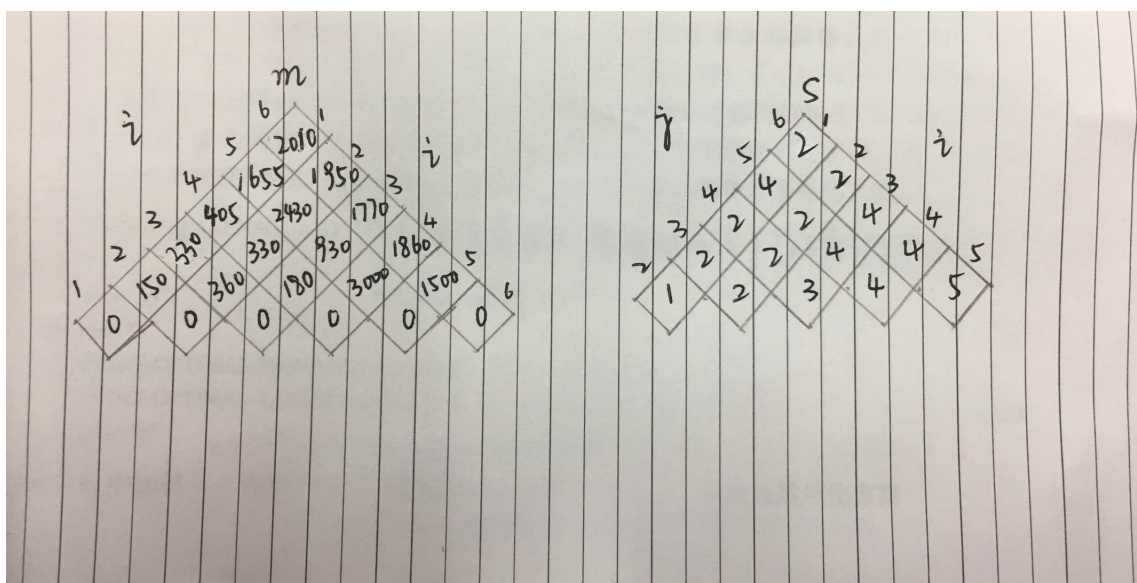 m
6 1
i 5 2010 2 i
4 1655 1950 3
3 405 2430 1770 4
2 330 330 930 1860 5
1 150 360 180 3000 1500 6
0 0 0 0 0 0
S
6 1
j 5 2 2 i
4 4 2 3
3 2 2 4 4
2 2 2 4 4 5
1 2 3 4 5